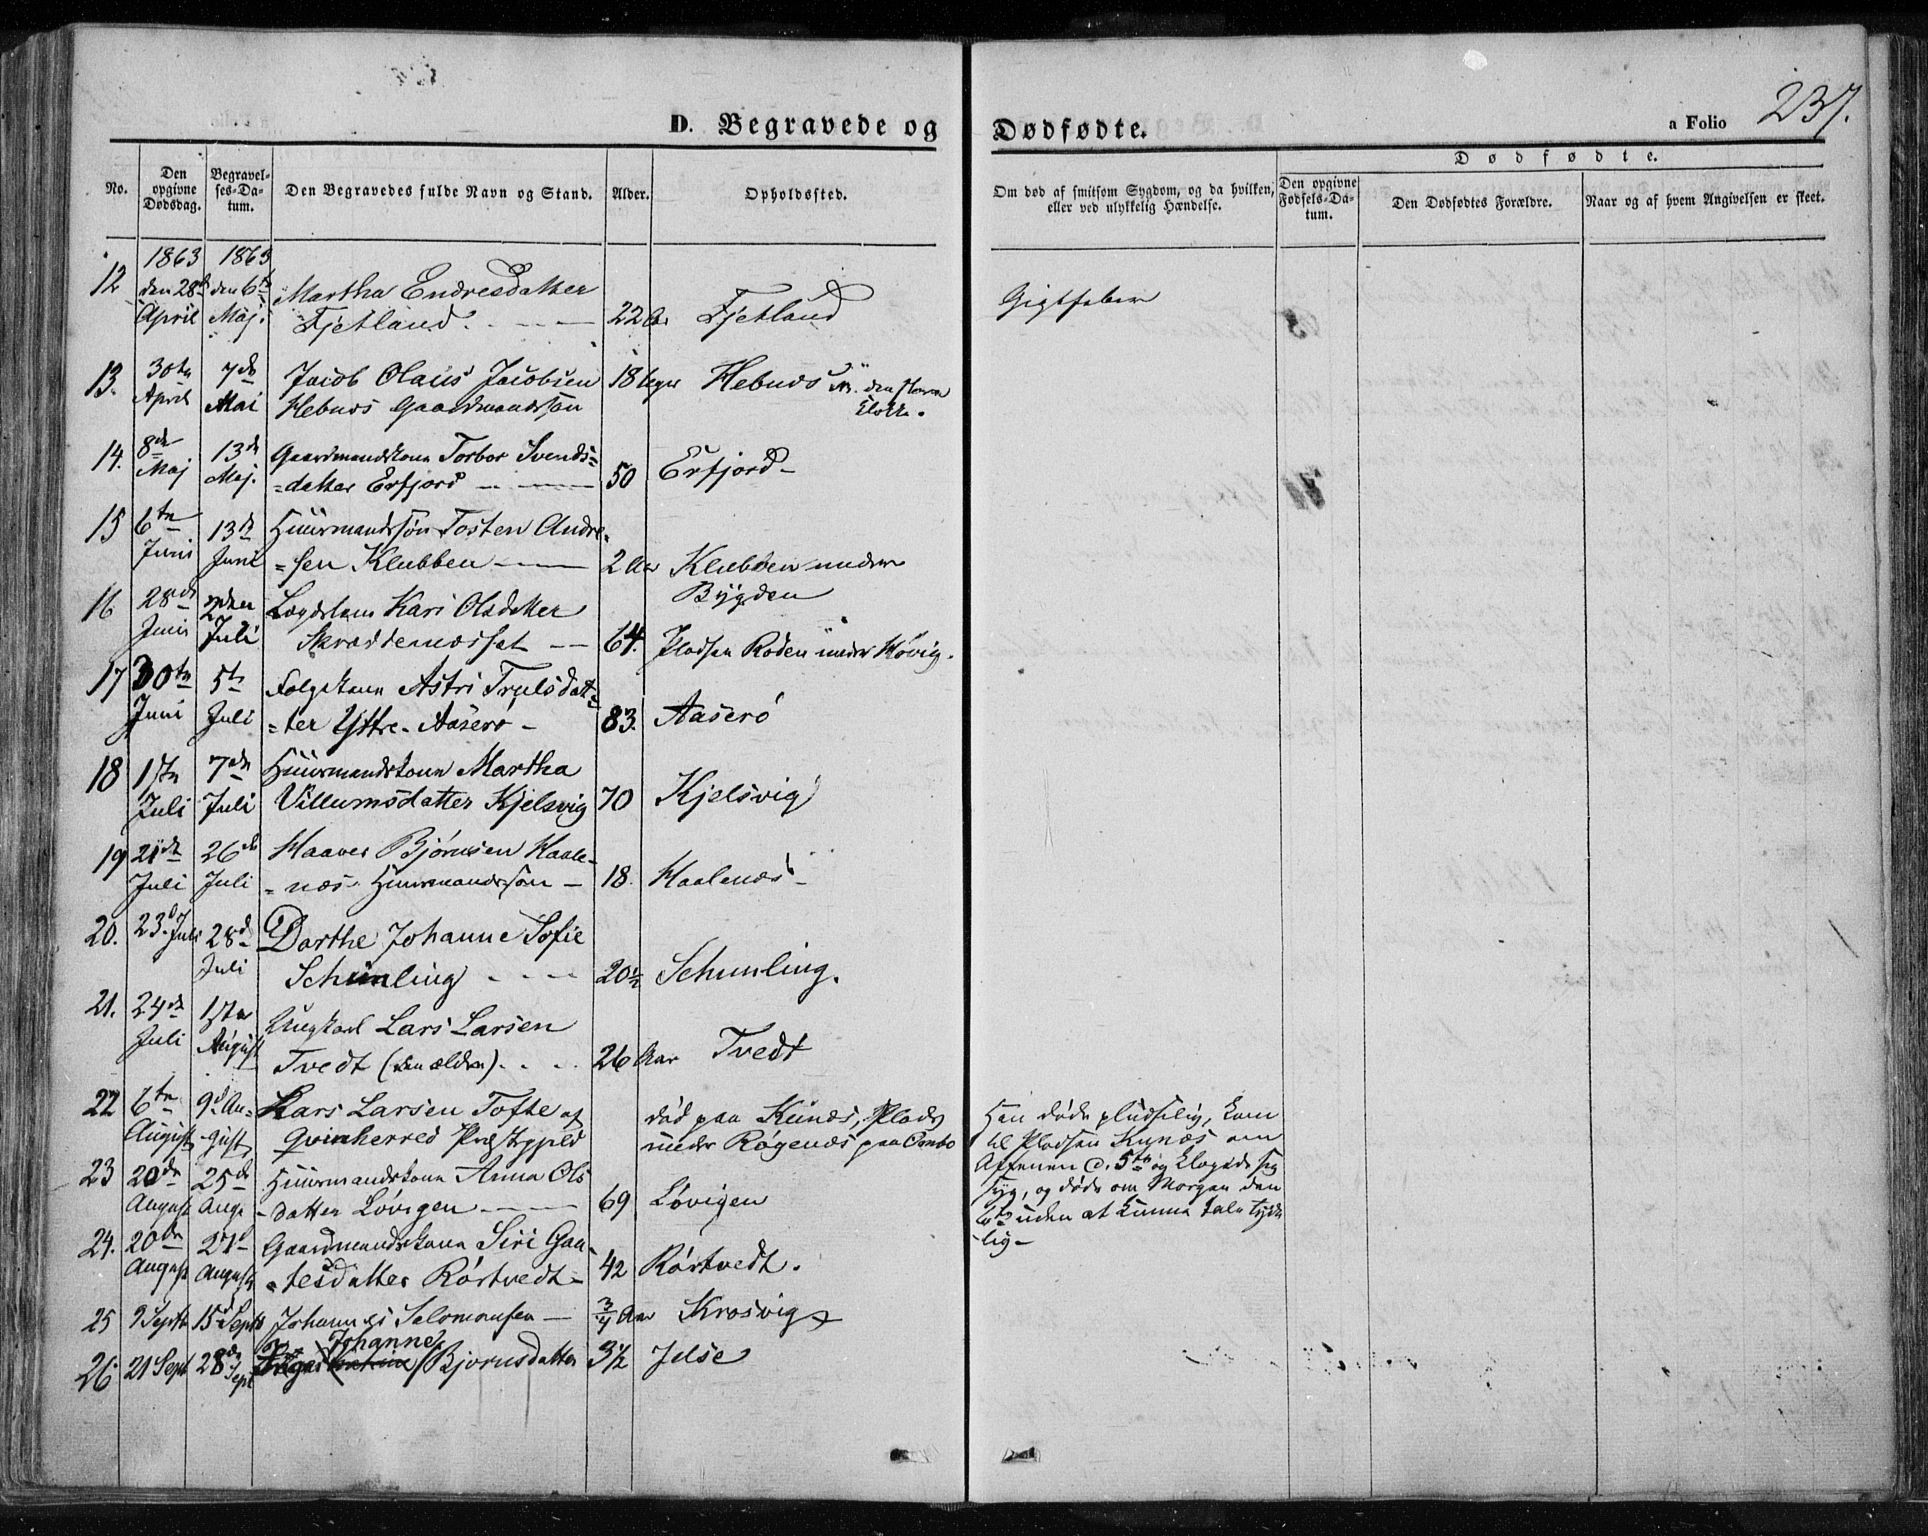 237.
D. Begravede og Dødfødte.
a Folio
No.
Den opgivne Dødsdag.
Begravelses-Datum.
Den Begravedes fulde Navn og Stand.
Alder.
Opholdssted.
Om død af smitsom Sygdom, og da hvilken, eller ved ulykkelig Hændelse.
Dødfødte.
Den opgivne Fødsels-Datum.
Den Dødfødtes Forældre.
Naar og af hvem Angivelsen er skeet.
1863 1863
12 den 28d den 6te Martha Endresdatter
April Maj. Fjetland. 22 Aar Fjetland Gigtfeber
13. 30te 7de Jacob Olaus Jacobsen 18 Uger Hebnæs
April Mai Hebnes Gaardmandssøn
14. 8de 13de Gaardmandskone Torbor Svends=
Maj Maj. =datter Erfjord 50 Erfjord
15 6te 13de Huusmandssøn Tosten Andre=
Juni Juni =sen Klubben 2 Aar Klubben under
Bygden
16 28de 2den Lægdslem Kari Olsdatter
Juni Juli 64. Pladsen Roden under Høvig.
17 30te 5te Folgekone Astri Trulsdatt=
Juni Juli =ter Yttre-Aaserø 83. Aaserö
18 1ste 7de Huusmandskone Martha
Juli Juli Villumsdatter Kjelsvig 70 Kjelsvig
19 21de 26de Haaver Bjørnsen Haale-
Juli Juli =næs Huusmandssøn 18. Haalenæs
20. 23d Juli 28d Dorthe Johanne Sofie
Juli Schünling 20½ Schunling.
21. 24de 1ste Ungkarl Lars Larsen
Juli August Tvedt (den ældre) 26 Aar Tvedt
22 6te 9d Au= Lars Larsen Tofte af død paa Kunæs, Plads
August =gust Qvinherred Præstegjeld under Røgenæs paa Ombo
Han døde pludselig, kom
til Pladsen Kunæs om
Aftenen d. 5te og klagede sig
syg, og døde om Morgen den
6te uden at kunne tale tyde
lig
23 20de 25de Huusmandskone Anna Ols
August Augs =datter Løvigen 69 Løvigen
24. 20de 27d Gaardmandskone Siri Gau=
August August =tesdatter Rørtvedt 42 Rørtvedt.
25 9 Septb 15d Septb Johannes Salomonsen ¾ Aar Krosvig
Johanne
26. 21 Sept 28de Sept Bjørnsdatter 3½ Jelse